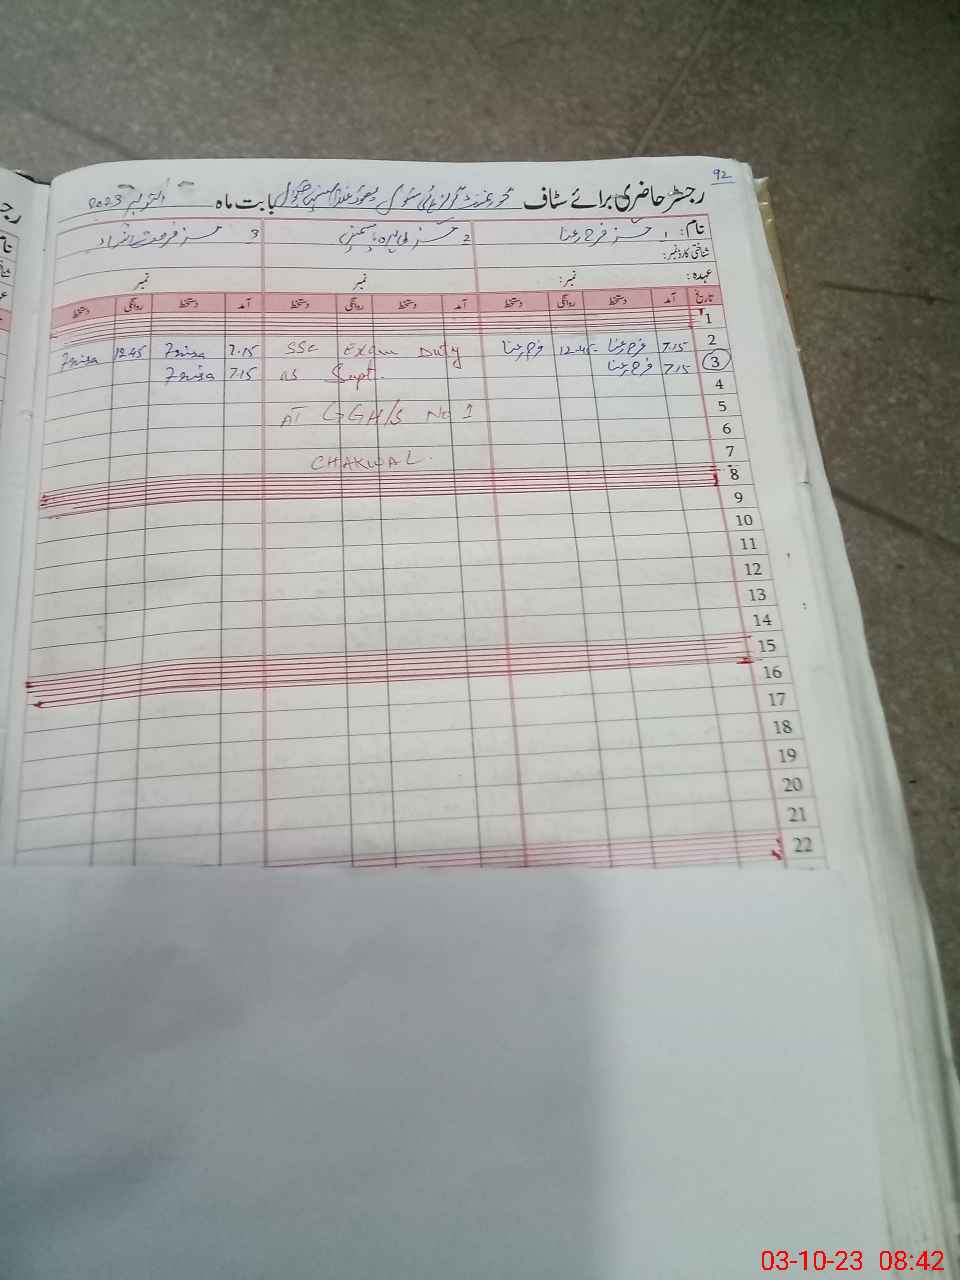 92
رجسٹر حاضری برائے سٹاف گورنمنٹ گرلز ہائی سکول بابت ماہ اکتوبر 2023
نام: 1 مسز فرح رعنا 2 مسز 3 مسز
شناختی کارڈ نمبر:
عہدہ: نمبر: نمبر نمبر
تاریخ آمد دستخط روانگی دستخط آمد دستخط روانگی دستخط آمد دستخط روانگی دستخط
1
2 7.15 فرح رعنا 12.45 فرح رعنا SSC Exam Duty 7.15 12.45
3 7.15 فرح رعنا as Supt. 7.15
4
5 AT GGH/S No 1
6
7 CHAKWAL.
8
9
10
11
12
13
14
15
16
17
18
19
20
21
22
03-10-23 08:42